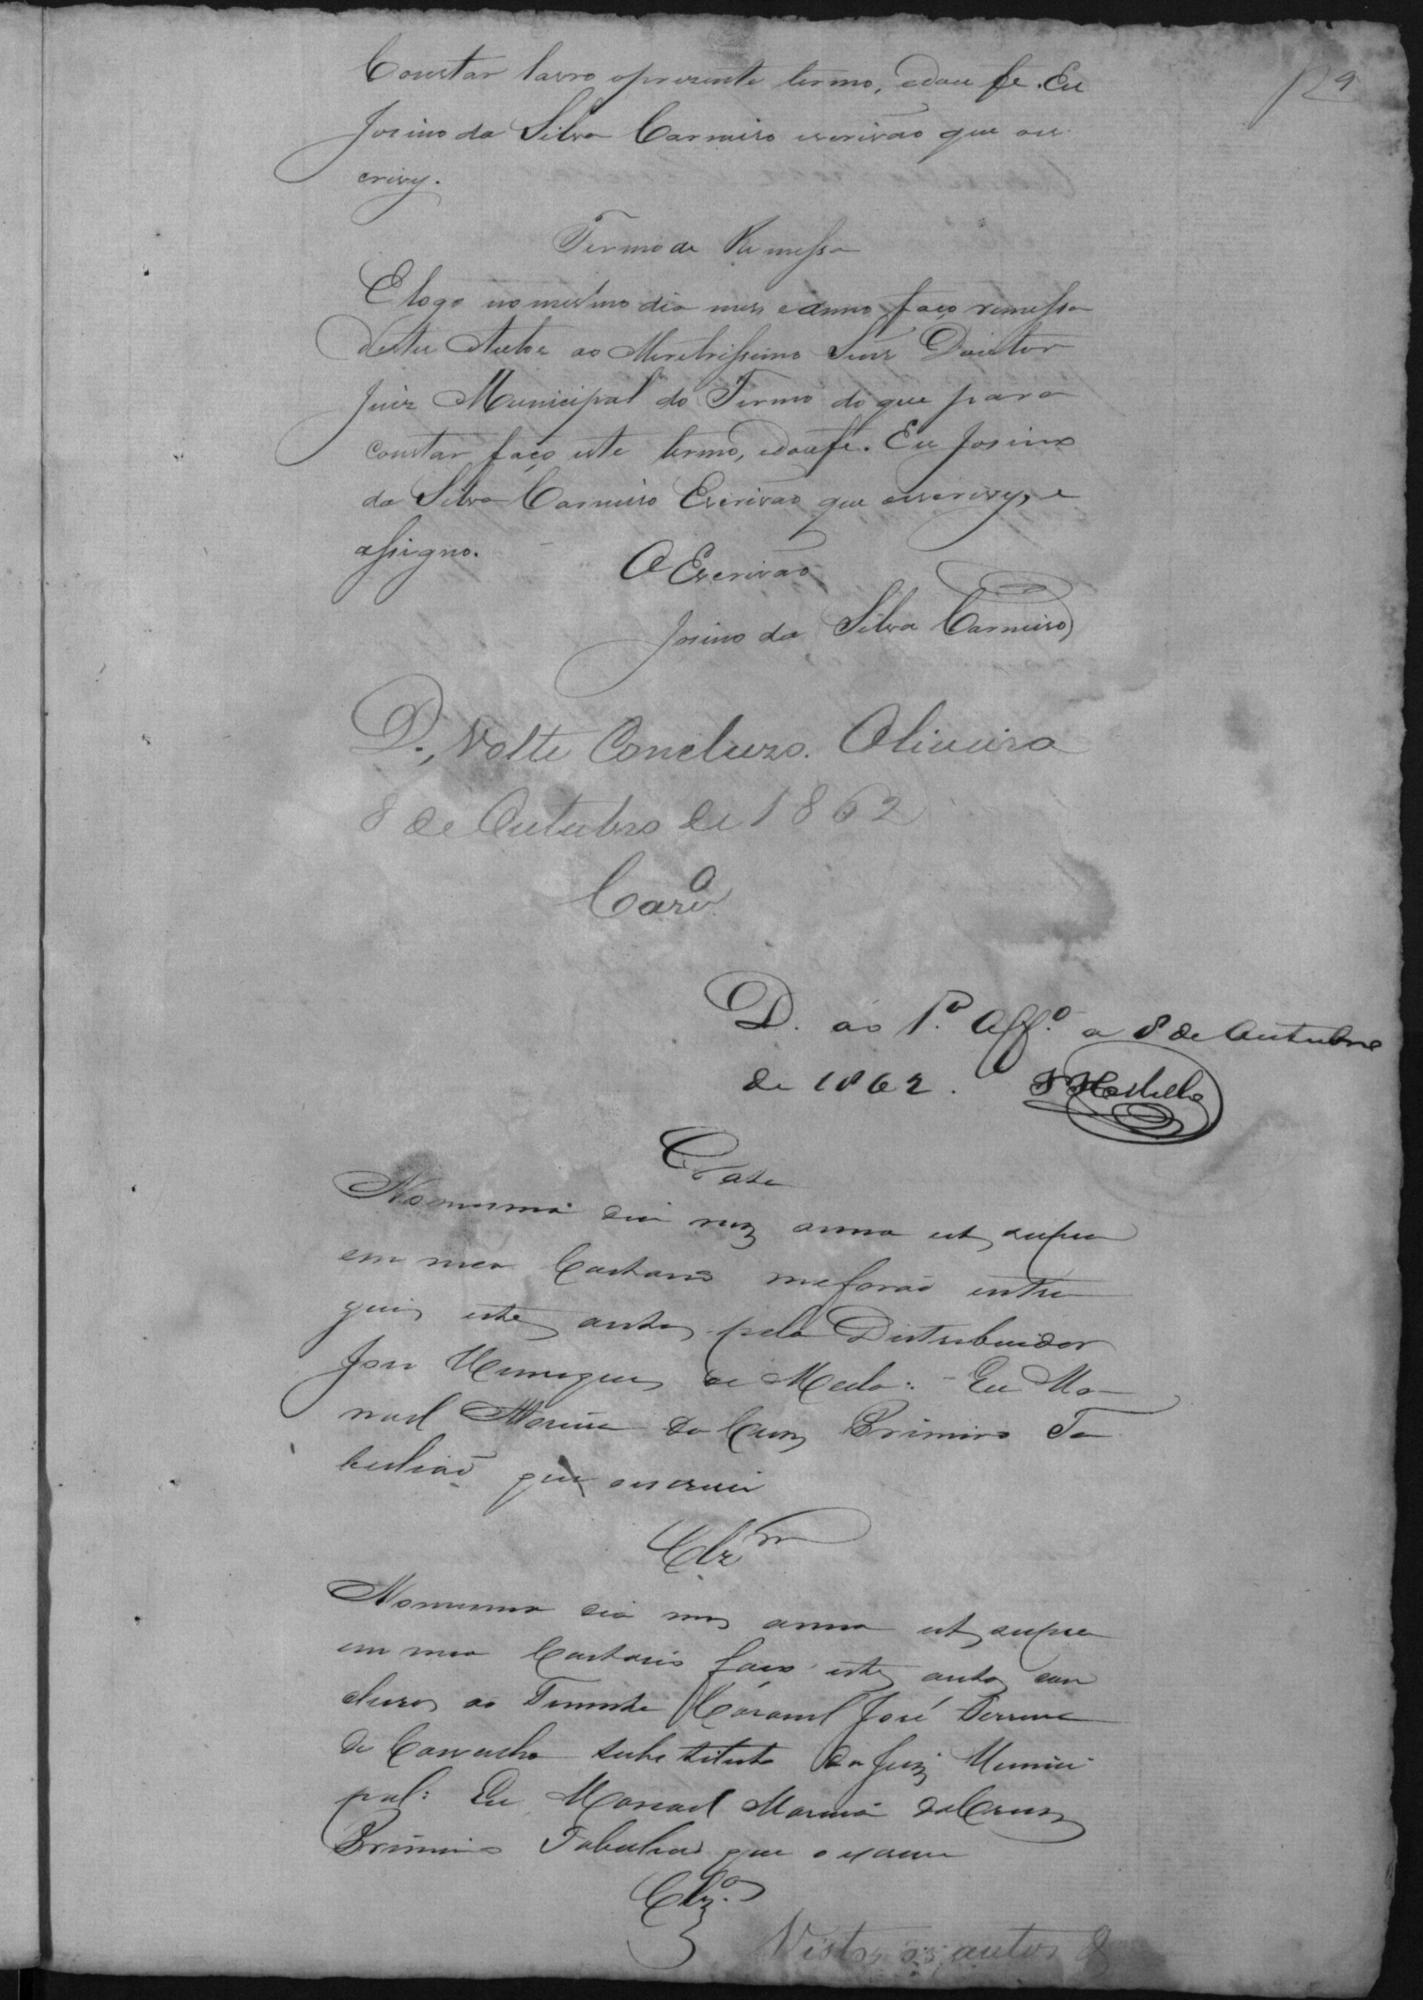 Constar lavro oprezente termo, edou fe. Eu
129
Josino da Silva Carneiro escrivão que es
crivy.
Termo de Remessa
E logo nomesmo dia mes eanno faço remessa
destes Autos ao Meretrissimo Senr Doutor
Juiz Municipal do Termo do que para
constar faço este termo, edoufé. Eu Josino
da Silva Carneiro Escrivão que escrevy, e
assigno.
O Escrivão
Josino da Silva Carneiro
D., Volte Concluzo. Oliveira
8 de Outubro de 1862
Carvº
D. ao 1.º Off.º a 8 de Outubro
de 1862.
Data
Nomesmo dia mez anno ut supra
em meo Cartorio meforão entre
gues estes autos pelo Destribuidor
José de Mello: Eu Ma
noel Moreira da Cruz Primeiro Ta
bellião que escrevi
Clzm
Nomesmo dia mes anno ut supra
em meo Cartorio faço estes autos con
cluzos ao Tenente Coronel José Ferreira
de Carvalho substituto do Juiz Munici
pal: Eu Manoel Moreira da Cruz
Primeiro Tabellião que o escrevi
Clzº
Vistos os autos &